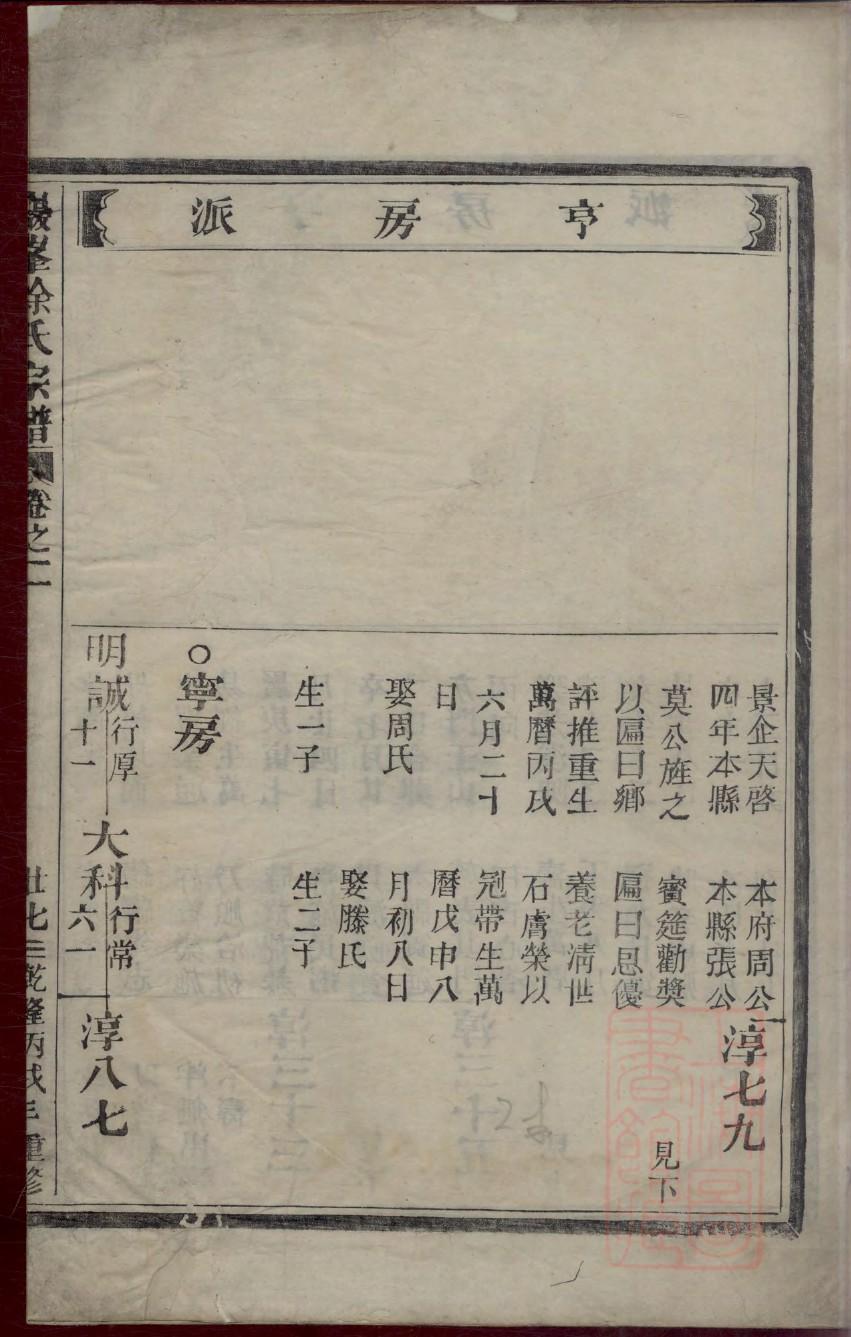 亨房派
景企天啓
四年本縣
莫公旌之
以匾曰鄉
評推重生
萬曆丙戌
六月二十
日
娶周氏
生一子
○寧房
明誠行厚
十一
本府周公
本縣張公
賓筵勸獎
匾曰恩優
養老清世
石膚榮以
冠帶生萬
曆戊申八
月初八日
娶滕氏
生二子
大科行常
六一
淳七九
見下
淳八七
峯徐氏宗譜
卷之二
乾隆丙戌年重修